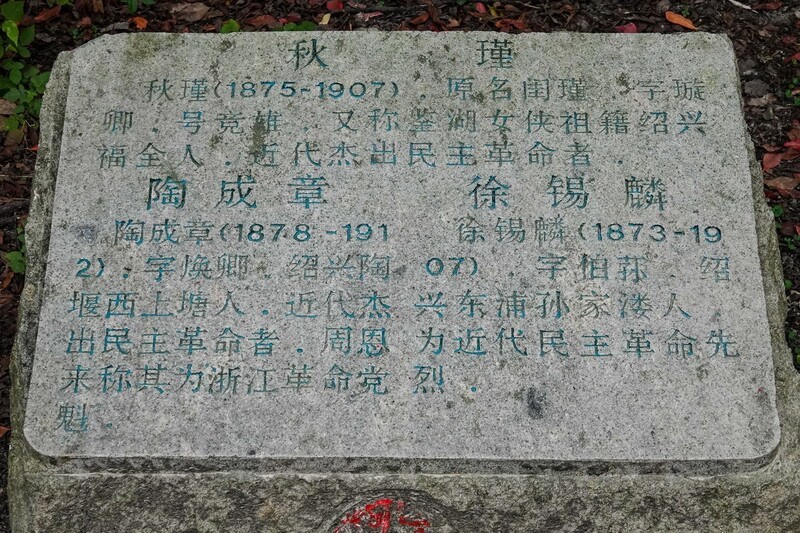 秋瑾
秋瑾(1875-1907).原名闺瑾.字璇
卿.号竞雄.又称鉴湖女侠祖籍绍兴
福全人.近代杰出民主革命者.
陶成章
陶成章(1878-191
2).字焕卿.绍兴陶
堰西上塘人.近代杰
出民主革命者.周恩
来称其为浙江革命党
魁.
徐锡麟
徐锡麟(1873-19
07).字伯荪.绍
兴东浦孙家溇人
为近代民主革命先
烈.